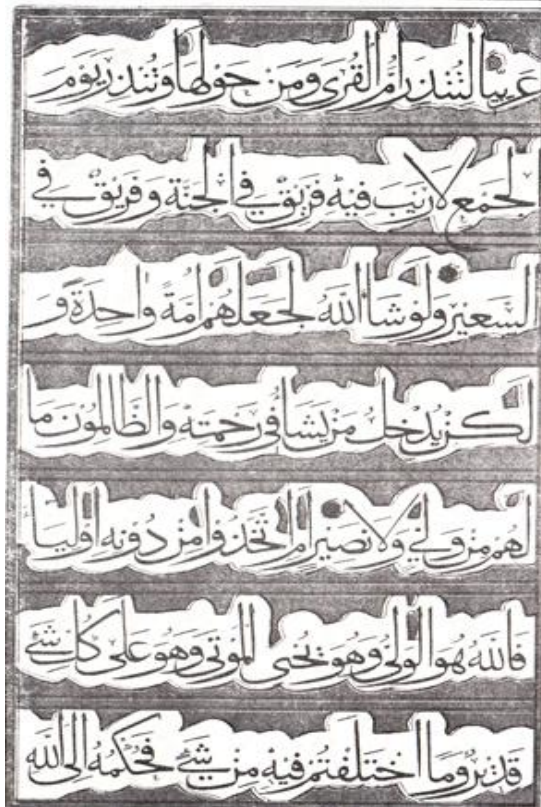 عربيا لتنذر ام القرى ومن حولها وتنذر يوم
الجمع لا ريب فيه فريق في الجنة وفريق في
السعير ولو شا الله لجعلهم امة واحدة و
لكن يدخل من يشا في رحمته والظالمون ما
لهم من ولي ولا نصير ام اتخذوا من دونه اوليا
فالله هو الولي وهو يحيي الموتى وهو على كل شئ
قدير وما اختلفتم فيه من شئ فحكمه الى الله